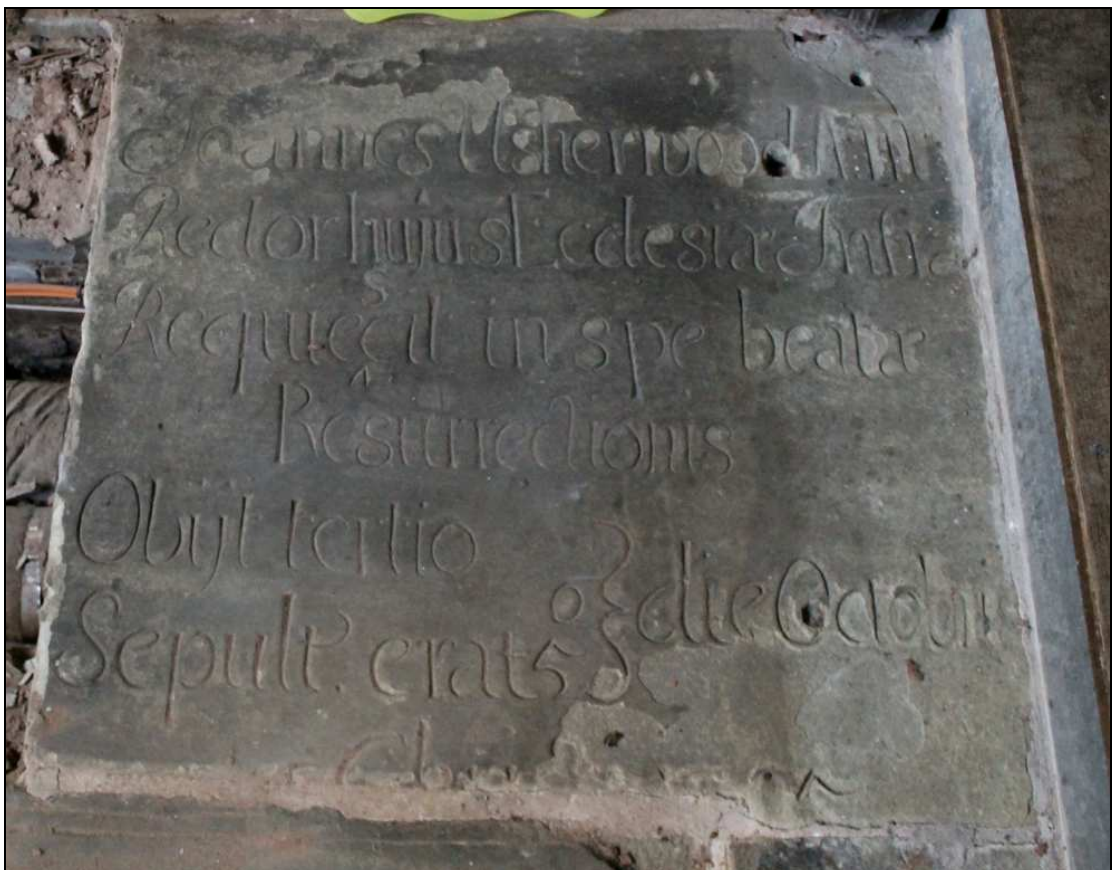 Joannes Usherwood AM
Rector hujus Ecclesiæ Infra
Requiescit in spe beatæ
Resurrectionis
Obijt tertio
die Octobris
Sepult. erat 5°